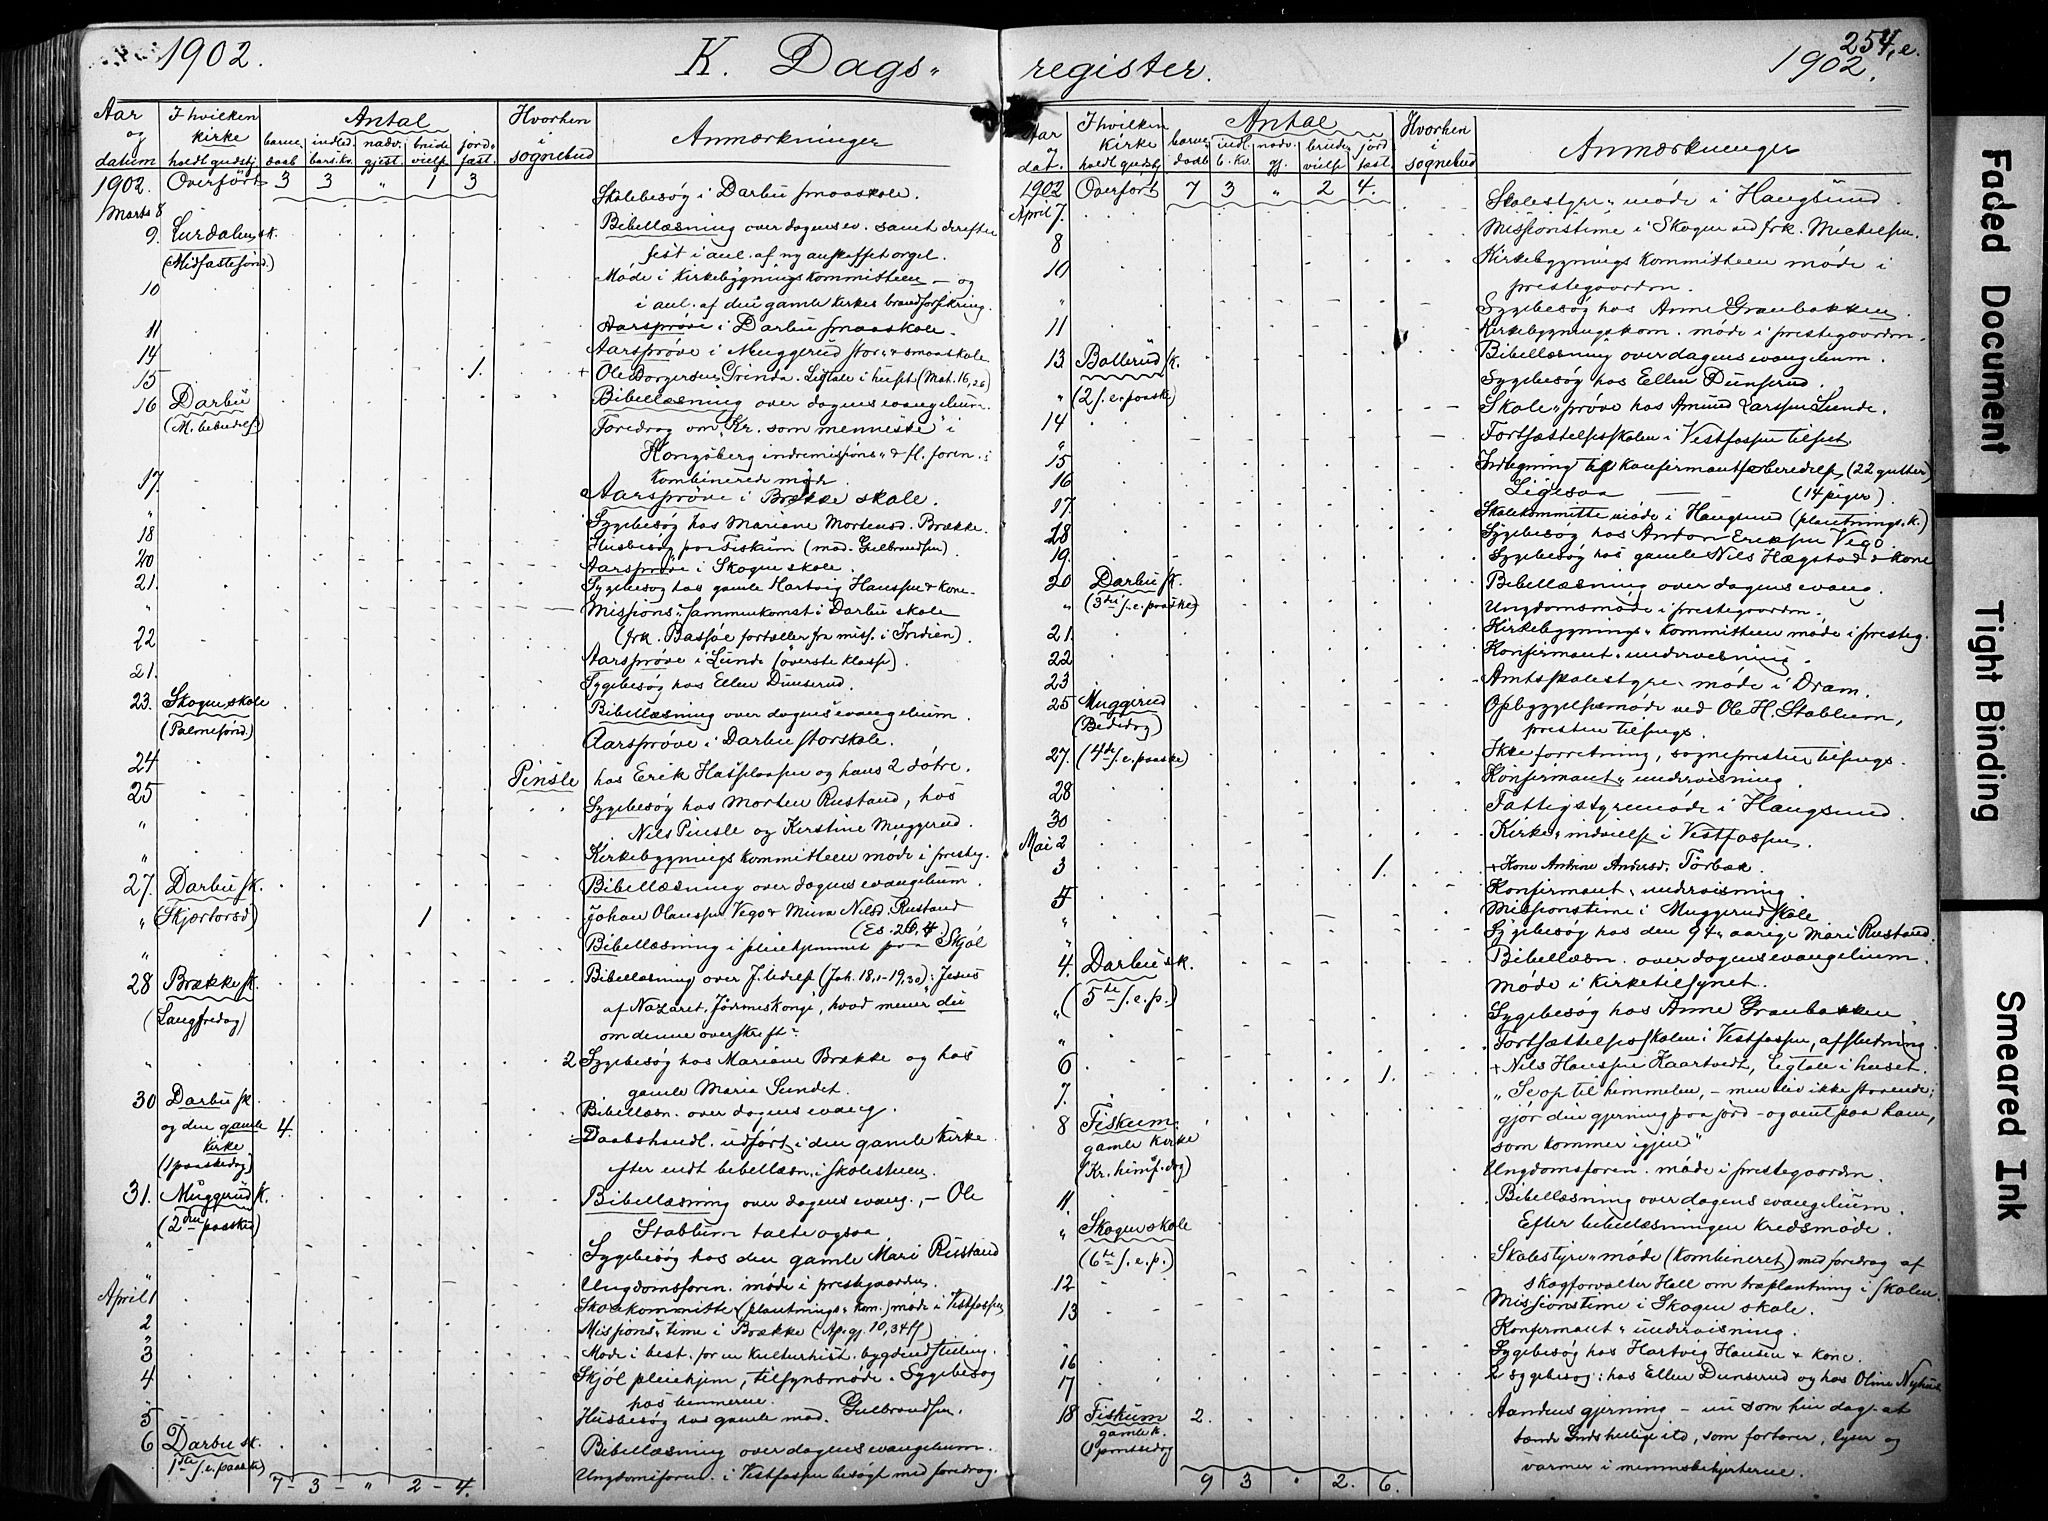 1902.
K. Dags-
register.
254,e.
1902.
Aar og datum
I hvilken kirke holdt gudstj.
Antal
barne daab
indled. bars.kv.
nadv. gjest.
brude vielse
jords fæst.
Hvorhen i sognebud
Anmærkninger
1902. Overført 3 3 " 1 3
Marts 8 Skolebesøg i Darbu smaaskole.
9. Lurdalen sk. Bibellæsning over dagens ev. samt derefter
(Midfastesønd.) fest i anl. af ny anskaffet orgel.
10 Møde i Kirkebygningskommitteen – og
i anl. af den gamle kirkes brandforsikring.
11 Aarsprøve i Darbu smaaskole.
14 Aarsprøve i Muggerud stor- & smaaskole
15 1. + Ole Borgersen Grinda. Ligtale i huset (Mat. 16,26)
16 Darbu Bibellæsning over dagens evangelium.
(M. bebudelse) Foredrag om "Kr. som menneske" i
Kongsberg indremissions- & fl. foren. i
kombinerede møde.
17. Aarsprøve i Brække skole.
" Sygebesøg hos Mariane Mortensd. Brække.
18 Husbesøg paa Fiskum (mad. Gulbrandsen).
20 Aarsprøve i Skogen skole.
21. Sygebesøg hos gamle Hartvig Hanssen & kone.
" Missions-sammenkomst i Darbu skole
(frk. Bassøe fortæller fra miss. i Indien).
22 Aarsprøve i Lunde (øverste klasse).
21. Sygebesøg hos Ellen Dunserud.
23. Skogen skole Bibellæsning over dagens evangelium.
(Palmesønd.)
24 Aarsprøve i Darbu storskole.
25 Pinsle hos Erik Hasselaasen og hans 2 døtre.
" Sygebesøg hos Morten Rustand, hos
Nils Pinsle og Kerstine Muggerud.
" Kirkebygningskommitteen møde i presteg.
27. Darbu sk. Bibellæsning over dagens evangelium.
" (Skjærtorsd) 1 Johan Olaussen Vego & Mina Nilsd. Rustand
(Es. 26,4.)
" Bibellæsning i pleiehjemmet paa Skjøl
28 Brække sk. Bibellæsning over J. lidelse (Joh. 18,1-19,30): Jesus
(Langfredag) af Nazaret, Jødernes konge, hvad mener du
om denne overskrift?
" 2 Sygebesøg hos Mariane Brække og hos
gamle Maria Sundet.
30 Darbu sk. Bibellæsn. over dagens evang.
og den gamle kirke 4. Daabshandl. udført i den gamle kirke
(1 paaskedag) efter endt bibellæsn. i skolestuen.
31. Muggerud sk. Bibellæsning over dagens evang., – Ole
(2den paasked) Stablum talte ogsaa.
" Sygebesøg hos den gamle Mari Rustand
" Ungdomsforen. møde i prestegaarden.
April 1 Skolekommitté (plantnings-kom.) møde i Vestfossen
2 Missions-time i Brække (Ap. gj. 10,34ff)
3 Møde i best. for en kulturhist. bygdeudstilling.
4 Skjøl pleiehjem, tilsynsmøde. Sygebesøg
hos lemmerne.
5 Husbesøg hos gamle mad. Gulbrandsen.
6 Darbu sk. Bibellæsning over dagens evangelium.
1ste s.e. paaske) Ungdomsforen. i Vestfossen besøgt med foredrag.
7 – 3 – " 2 – 4.
Aar og dat.
I hvilken Kirke holdt gudstj.
Antal
barne daab
indl. b. kv.
nadv. gj.
brude vielse
jord fæst.
Hvorhen i sognebud
Anmærkninger
1902 Overført 7 3 " 2 4.
April 7. Skolestyre- møde i Haugsund.
8 Missionstime i Skogen ved frk. Michelsen.
10 Kirkebygnings kommitteen møde i
prestegaarden.
" Sygebesøg hos Anne Granbakken.
11 Kirkebygningskom. møde i prestegaarden.
13 Bollerud sk. Bibellæsning over dagens evangelium.
" (2 s.e. paaske) Sygebesøg hos Ellen Dunserud.
14 Skole-prøve hos Amund Larssen Lunde.
" Fortsættelsesskolen i Vestfossen tilset.
15 Indtegning til konfirmantforberedelse (22 gutter)
16 Ligesaa — (14 piger).
17. Skolekommitté møde i Haugsund (plantnings. k.)
18 Sygebesøg hos Anton Eriksen Vego.
19. Sygebesøg hos gamle Nils Hægstad & kone
20 Darbu sk. Bibellæsning over dagens evang.
" (3die s.e. paaske) Ungdomsmøde i prestegaarden.
21. Kirkebygnings- kommitteen møde i presteg.
22 Konfirmant-undervisning.
23 Amtsskolestyre- møde i Dram.
25 Muggerud Opbyggelsesmøde ved Ole H. Stablum,
(Bededag) presten tilsyngs.
27. (4de s.e. paaske) Ikke forretning, sognepresten tilsyngs.
28 Konfirmant- undervisning
30 Fattigstyremøde i Haugsund.
Mai 2 Kirke- indvielse i Vestfossen.
3 1. + Kone Andine Andersd. Torbak.
5 Konfirmant- undervisning
" Missionstime i Muggerud skole
" Sygebesøg hos den 94- aarige Mari Rustand.
4. Darbu sk. Bibellæsn. over dagens evangelium.
(5te s.e.p.) Møde i Kirketilsynet.
" Sygebesøg hos Anne Granbakken.
" Fortsættelsesskolen i Vestfossen, afslutning.
6 1. + Nils Hanssen Kaartvedt, Ligtale i huset.
7. "Se op til himmelen, – men bliv ikke staaende;
8 Fiskum gjør din gjerning paa jord – og vent paa ham,
gamle kirke som kommer igjen"
(Kr. himf. dag) Ungdomsforen. møde i prestegaarden
11 Bibellæsning over dagens evangelium.
" Skogen skole Efter bibellæsningen kredsmøde.
(6te s.e.p.) Skolestyre- møde (kombineret) med foredrag af
12 skogforvalter Hall om træplantning i skolen.
13 Missionstime i Skogen skole.
Konfirmant- undervisning.
16 Sygebesøg hos Hartvig Hansen & kone.
17 2 sygebesøg: hos Ellen Dunserud og hos Oline Nyhus
18 Fiskum 2. Aandens gjerning – nu som hin dag – at
gamle k. tænde Guds hellige ild, som fortærer, lyser og
(1 pinsedag varmer i menneskehjerterne.
9 3 " 2. 6.
Faded Document
Tight Binding
Smeared Ink